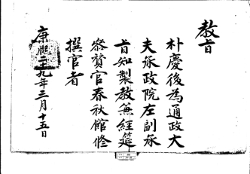 敎旨
朴慶後爲通政大
夫承政院左副承
旨知製敎兼經筵
參贊官春秋館修
撰官者
康熙二十九年三月十五日